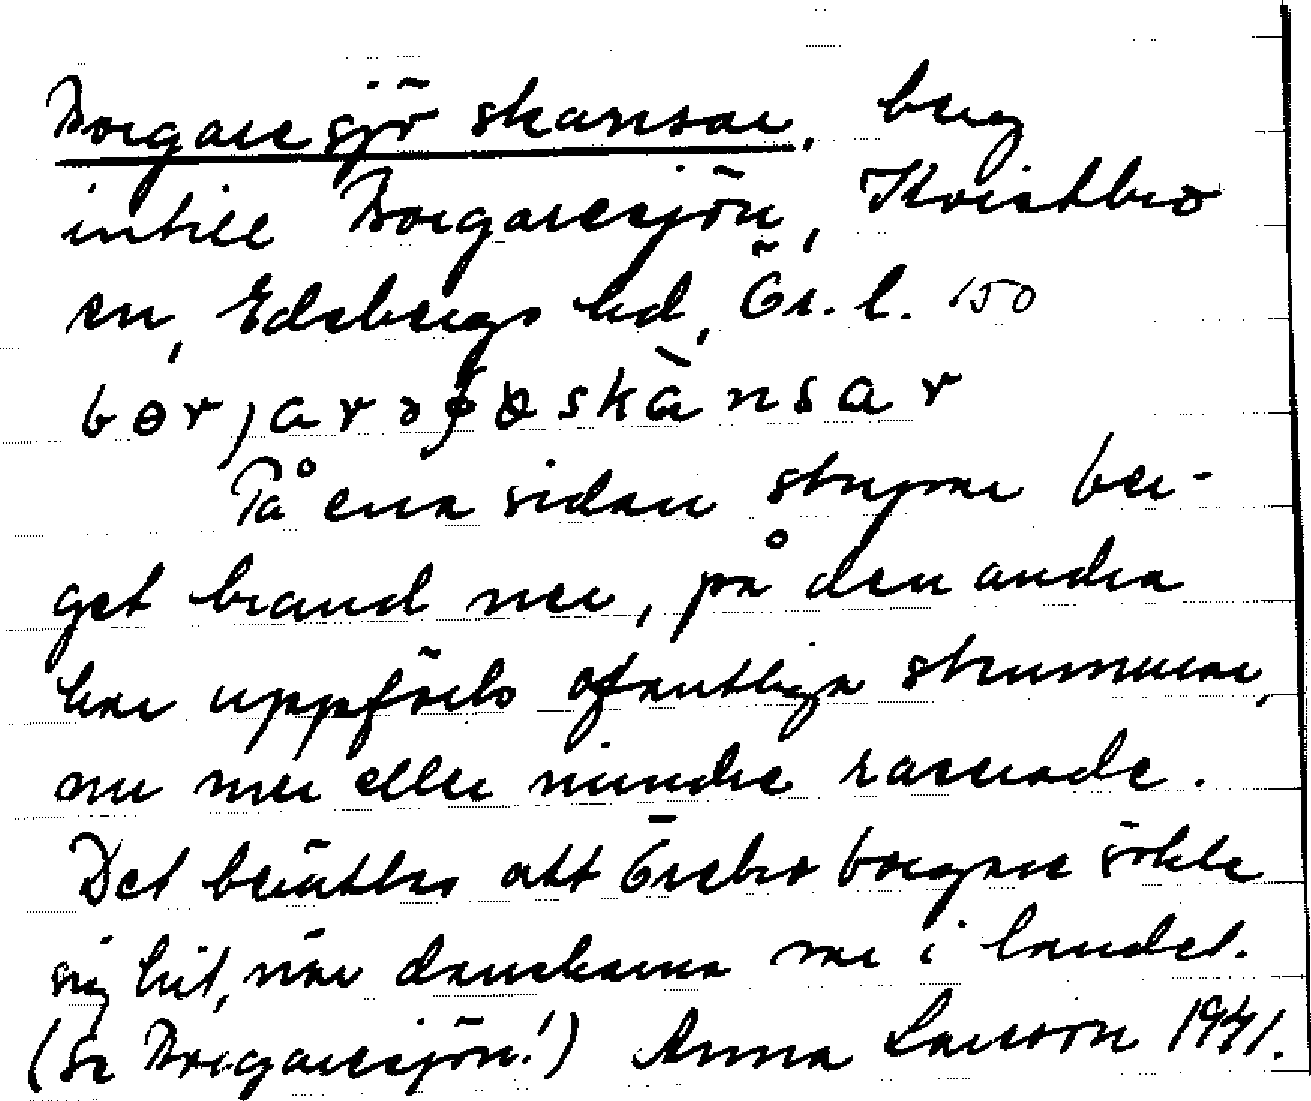 Borgaresjöskansar, berg
intill Borgaresjön, Kvistbro
sn, Edsbergs hd, Ör. l. 150
På ena sidan stupar ber-
get brand ner, på den andra
har uppförts ofantliga stenmurar,
nu mer eller mindre raserade.
Det berättas att Örebro borgare sökte
sig hit, när danskarna var i landet.
(Se Borgaresjön!) Anna Larsson 1941.